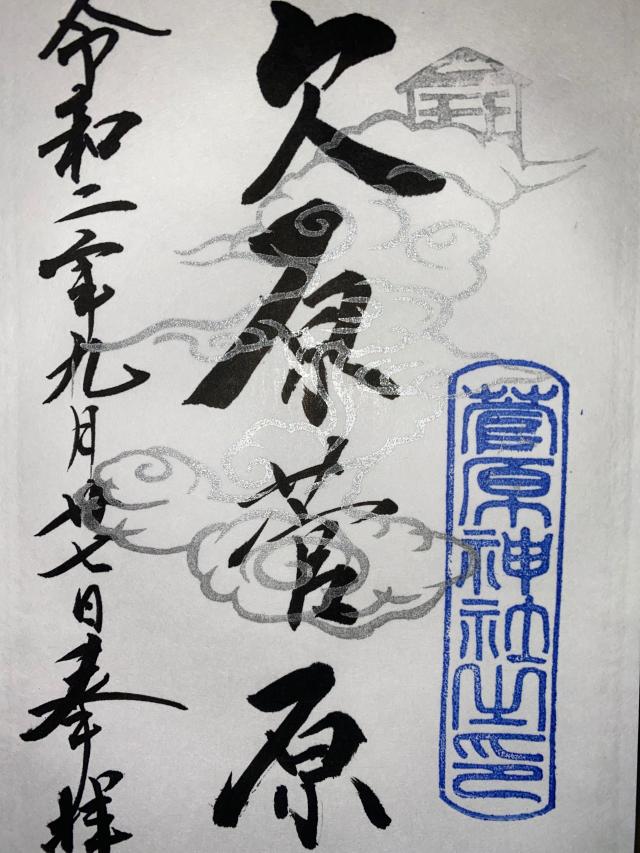 菅原神社之印
欠原菅原
令和二年九月廿七日奉拝